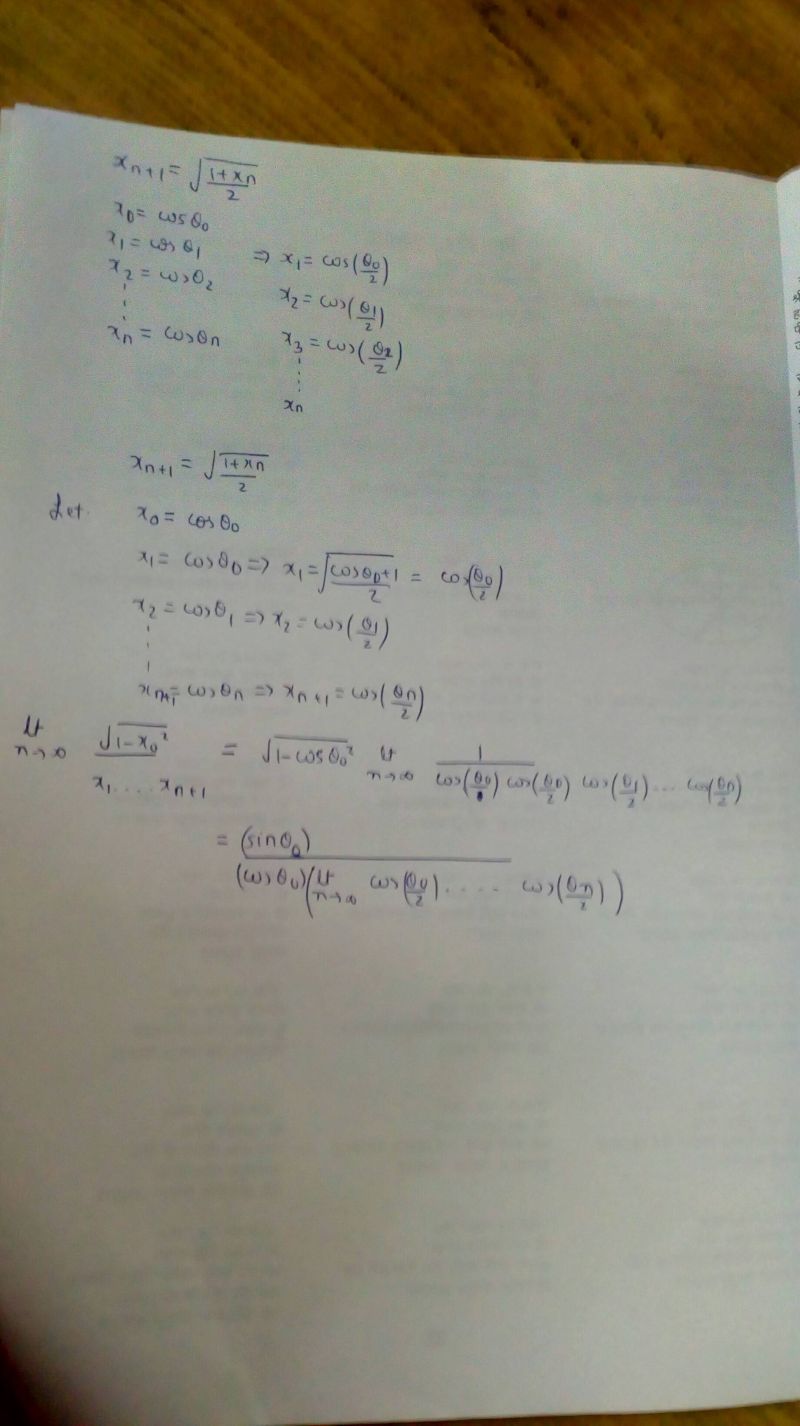 x_{n+1} = √((1+x_n)/2)
x_0 = cos θ_0
x_1 = cos θ_1 ⇒ x_1 = cos(θ_0/2)
x_2 = cos θ_2
x_2 = cos(θ_1/2)
x_n = cos θ_n
x_3 = cos(θ_2/2)
x_n
x_{n+1} = √((1+x_n)/2)
Let. x_0 = cos θ_0
x_1 = cos θ_0 ⇒ x_1 = √((cos θ_0+1)/2) = cos(θ_0/2)
x_2 = cos θ_1 ⇒ x_2 = cos(θ_1/2)
x_{n+1} = cos θ_n ⇒ x_{n+1} = cos(θ_n/2)
lt n→∞ √(1-x_0²)/(x_1 .... x_{n+1}) = √(1-cos θ_0²) lt n→∞ 1/(cos(θ_0) cos(θ_0/2) cos(θ_1/2) ... cos(θ_n/2))
= (sin θ_0)/((cos θ_0)(lt n→∞ cos(θ_0/2) ..... cos(θ_n/2)))